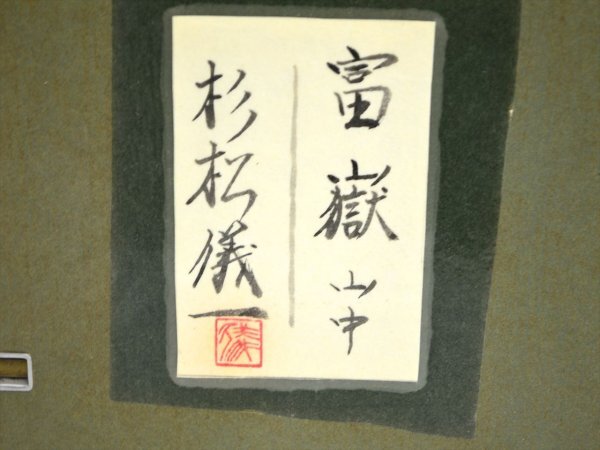 富嶽山中
杉松儀一
儀